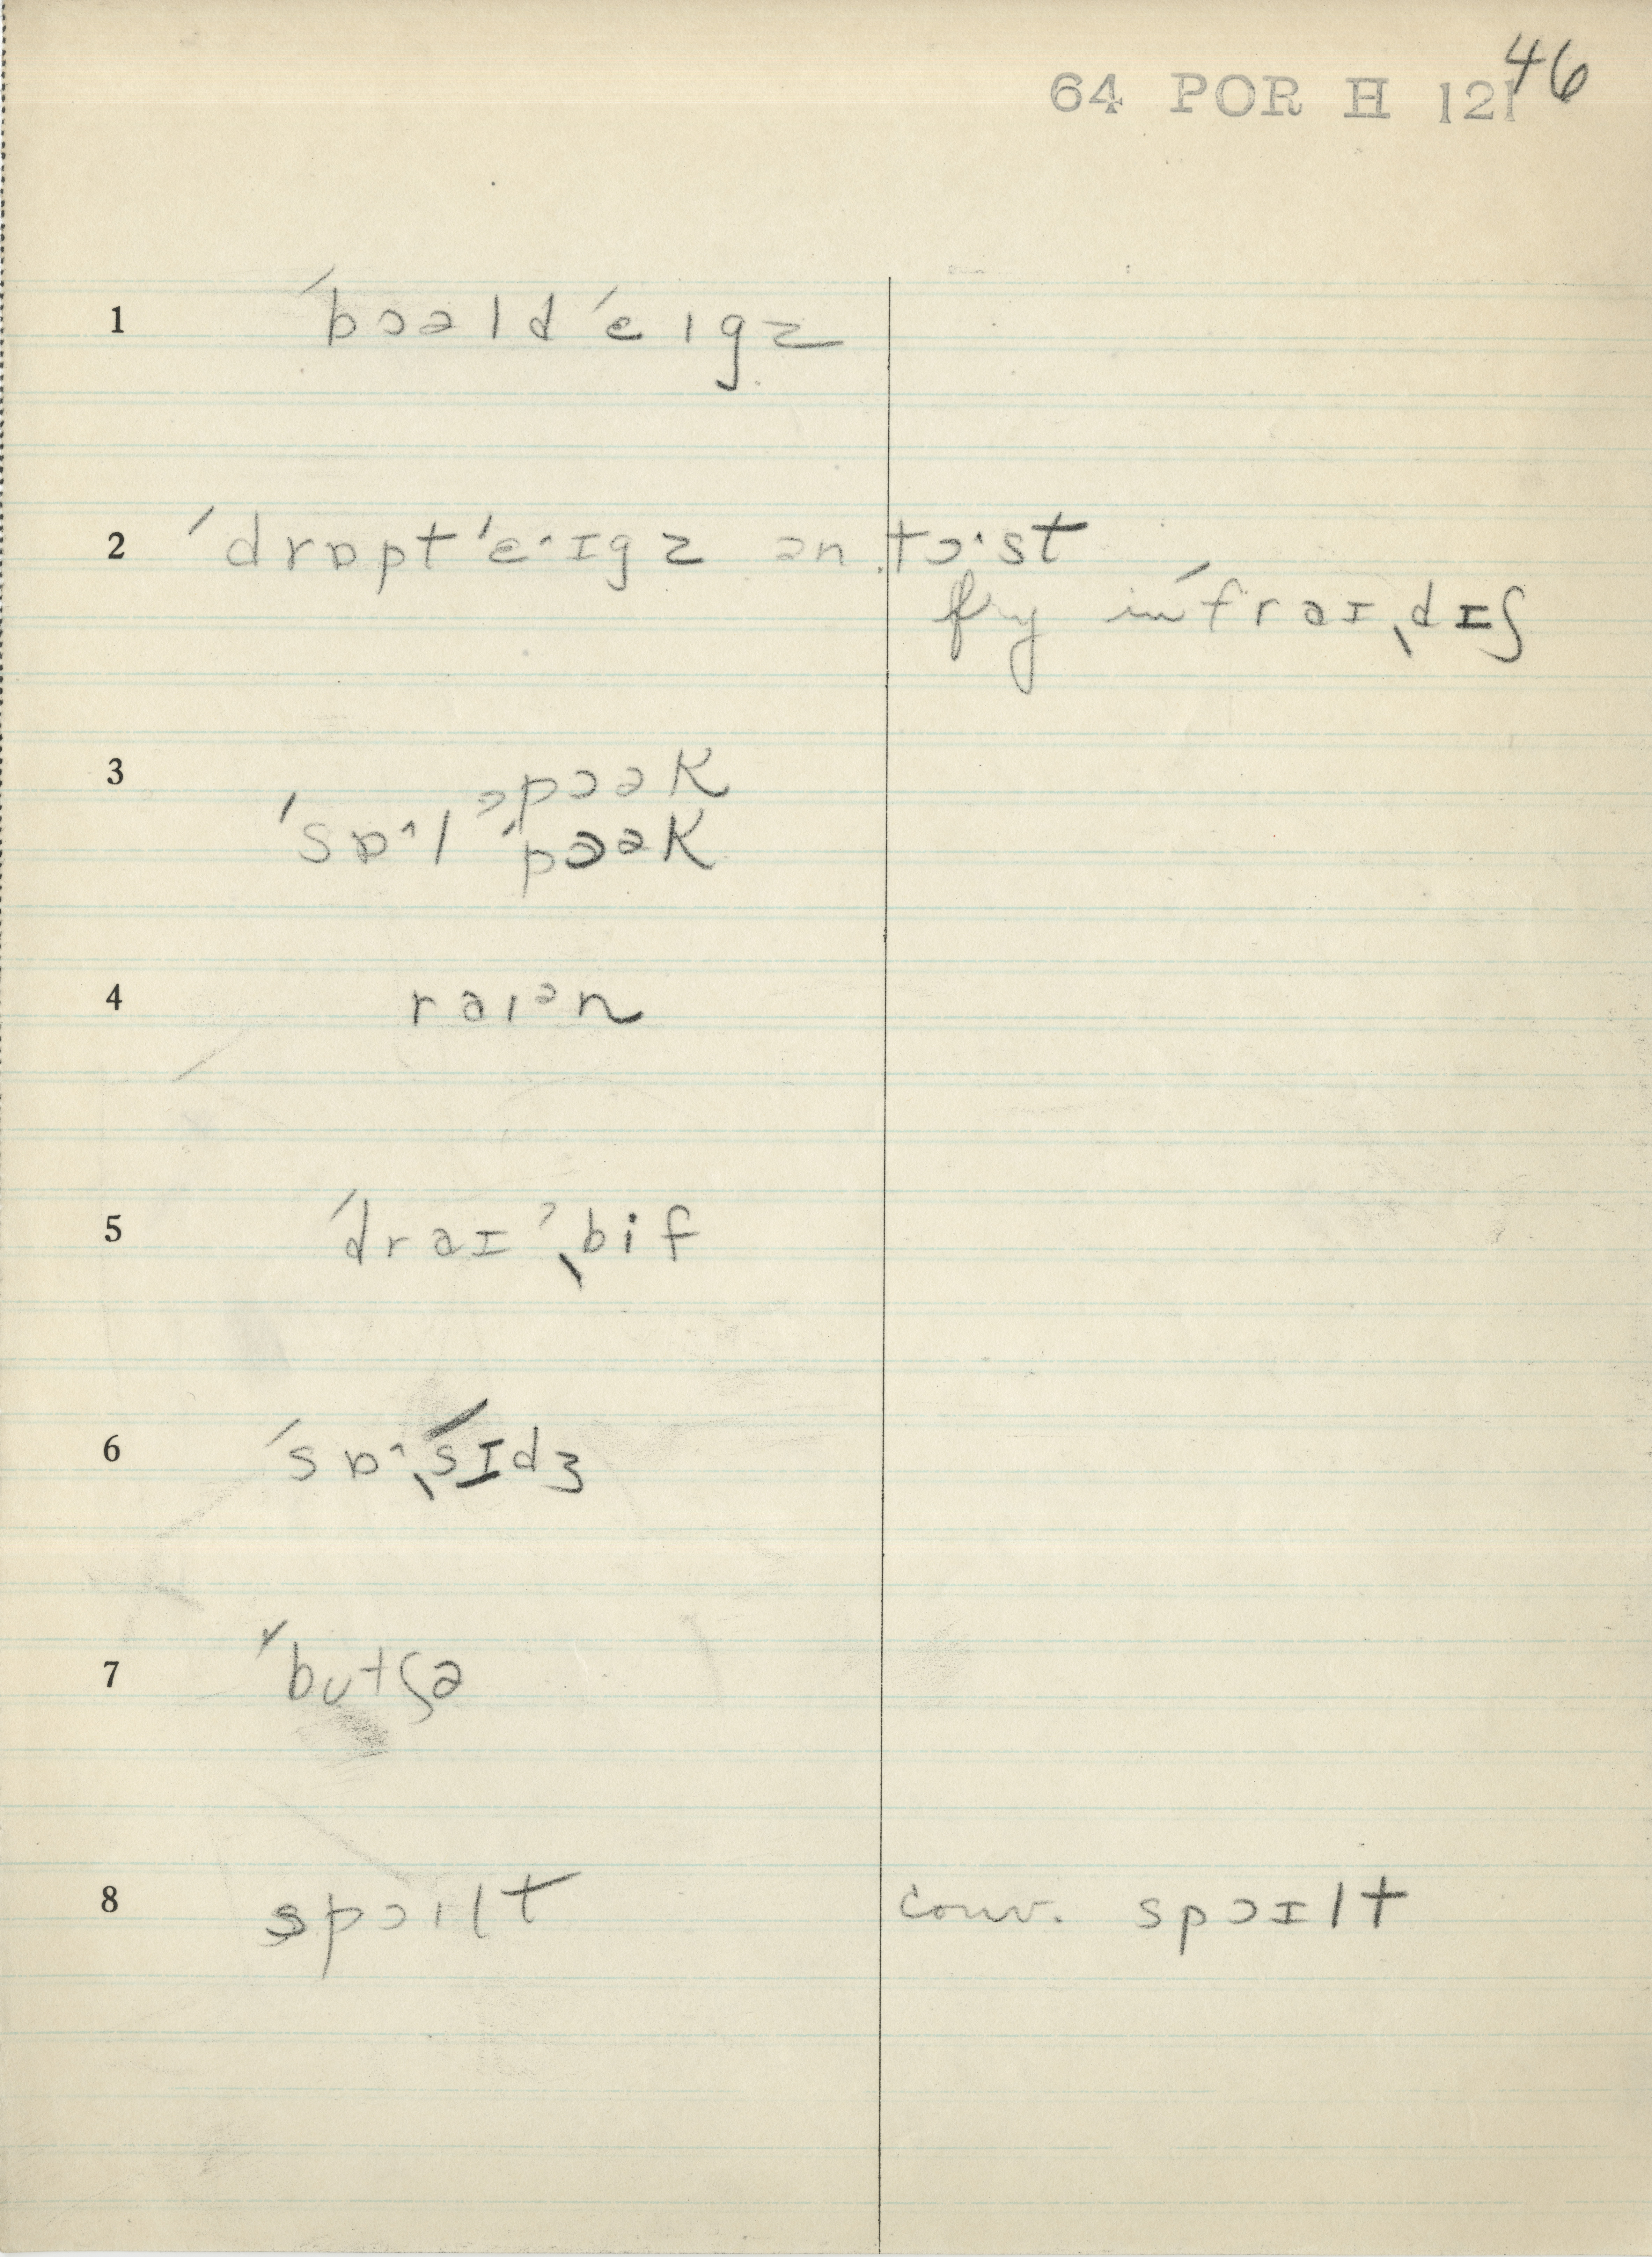 46
64 POR H 121
1 ˈbɔəld ˈeɪgz
2 ˈdrɒpt ˈeˑɪgz ən tɔˑst
fry in ˈfraɪˌdɪʃ
3 ᵊpɔək
ˈsɒˑlˈpɔək
4 raɪᵊn
5 ˈdraɪˀˌbif
6 ˈsɒˑˌsɪdʒ
7 ˈbʊtʃə
8 spɔɪlt conv. spɔɪlt